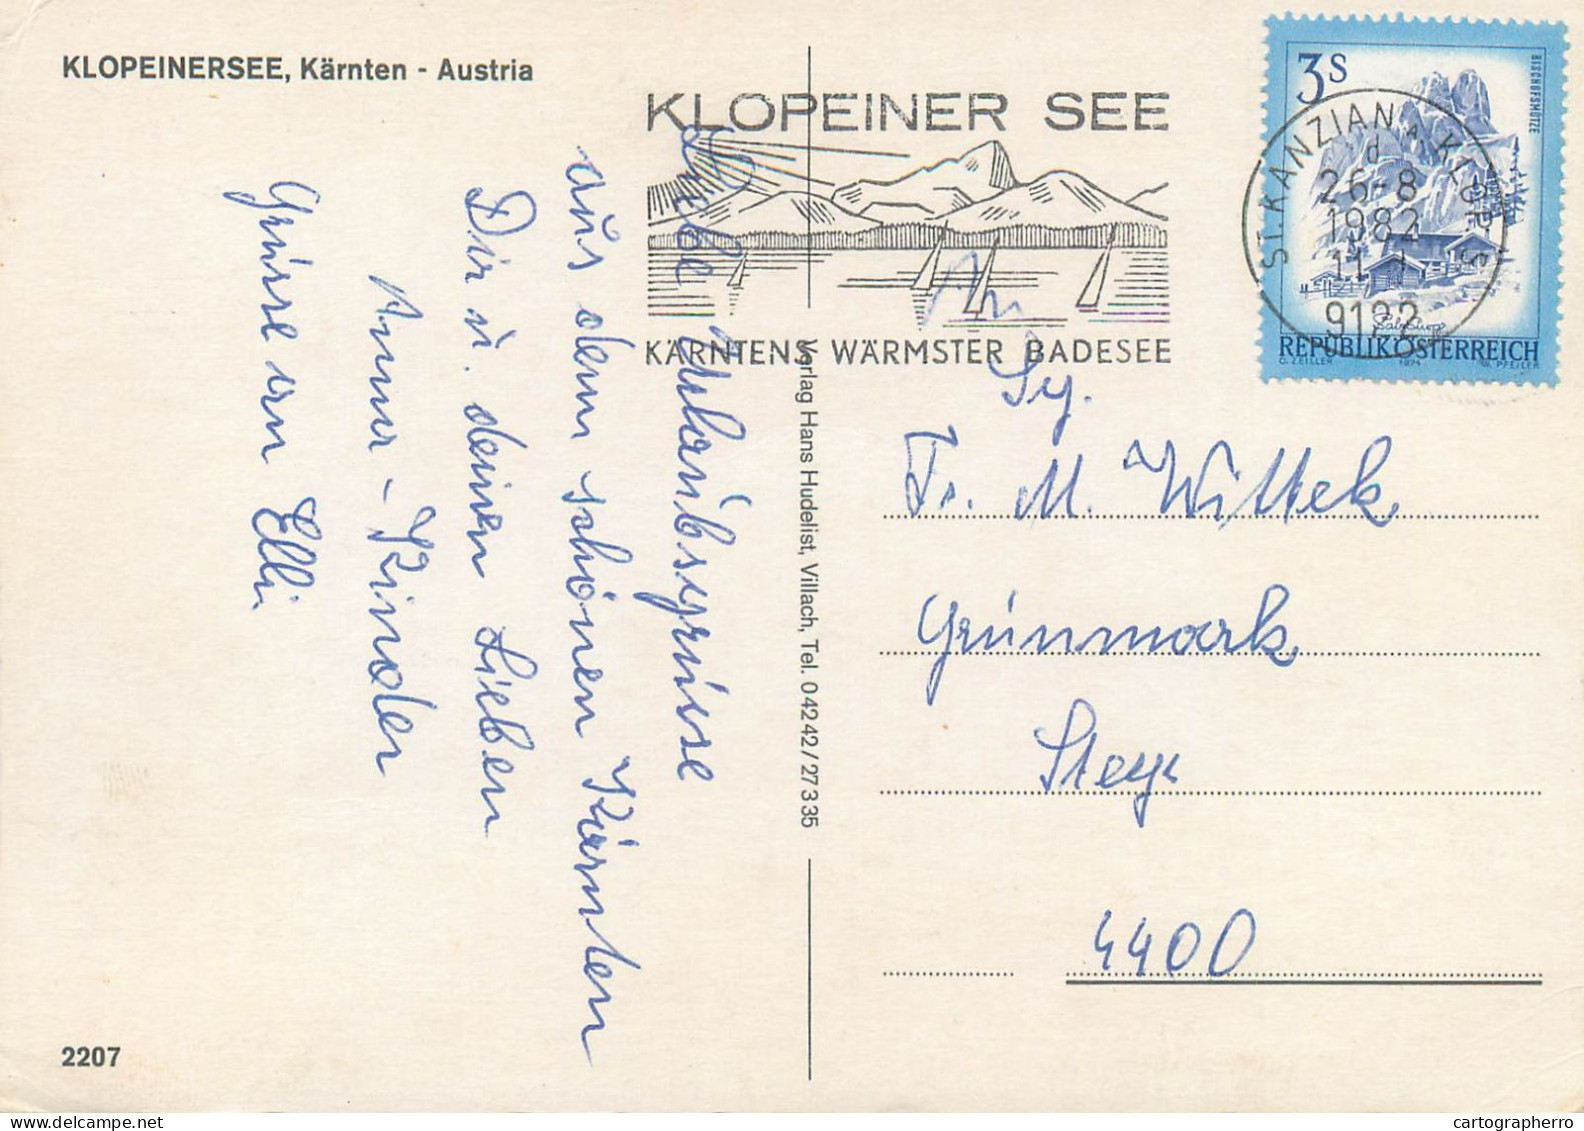 KLOPEINERSEE, Kärnten - Austria
KLOPEINER SEE
KÄRNTENS WÄRMSTER BADESEE
3S
BISCHOFSMÜTZE
REPUBLIK ÖSTERREICH
O. ZEILLER 1974 W. PFEILER
ST. KANZIAN A. KLOPS
d
26-8
1982
9122
Liebe Urlaubsgrüsse
aus dem schönen Kärnten
Dir u. deinen Lieben
Kinder
Grüsse von Elli
Verlag Hans Hudelist, Villach, Tel. 04242/27335
An
Fr. M. Wittek
Grünmark
Steyr
4400
2207
cartographerro